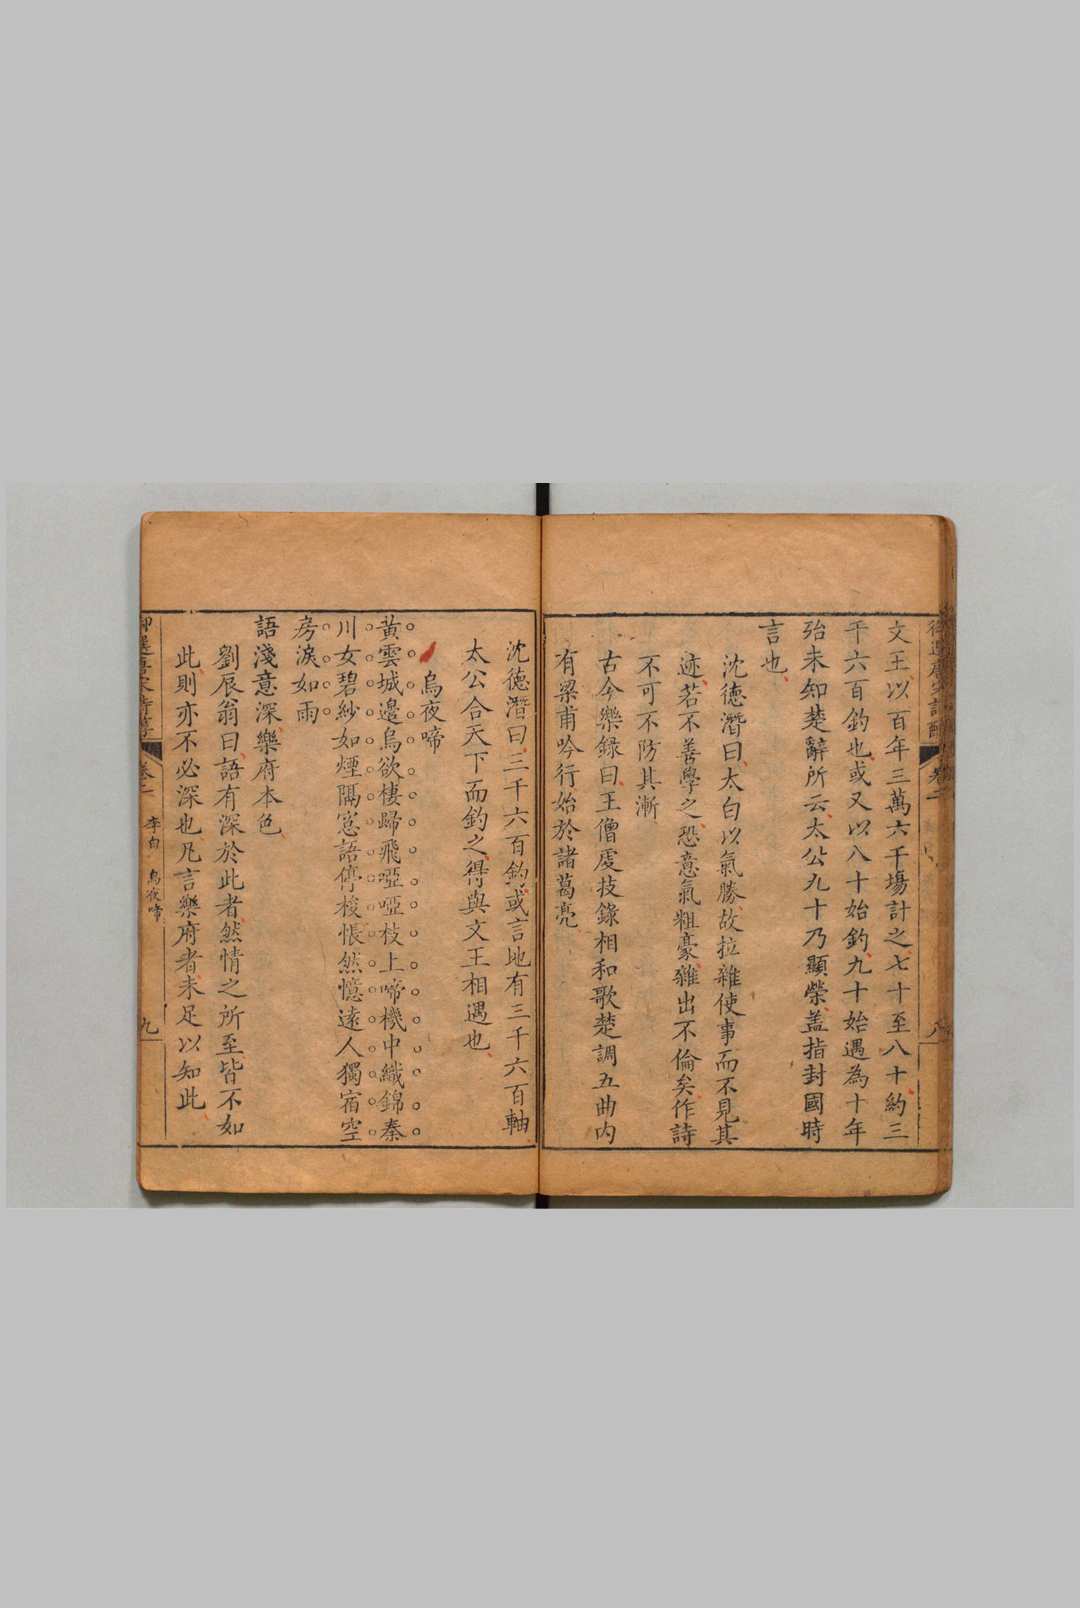 文王以百年三萬六千場計之七十至八十約三
平六百釣也或又以八十始釣九十始遇為十年
殆未知楚辭所云太公九十乃顯榮蓋指封國時
言也
沈德潛曰太白以氣勝故拉雜使事而不見其
迹若不善學之恐意氣粗豪雜出不倫矣作詩
不可不防其漸
古今樂録曰王僧虔技錄相和歌楚調五曲内
有梁甫吟行始於諸葛亮
沈德潛曰三千六百釣或言地有三千六百軸
太公合天下而釣之得與文王相遇也
烏夜啼
黃雲城邊烏欲棲歸飛啞啞枝上啼機中織錦秦
川女碧紗如煙隔窓語停梭悵然憶遠人獨宿空
房淚如雨
語淺意深樂府本色
劉辰翁曰語有深於此者然情之所至皆不如
此則亦不必深也凡言樂府者未足以知此
御選唐宋詩醇 卷二 李白 烏夜啼 九